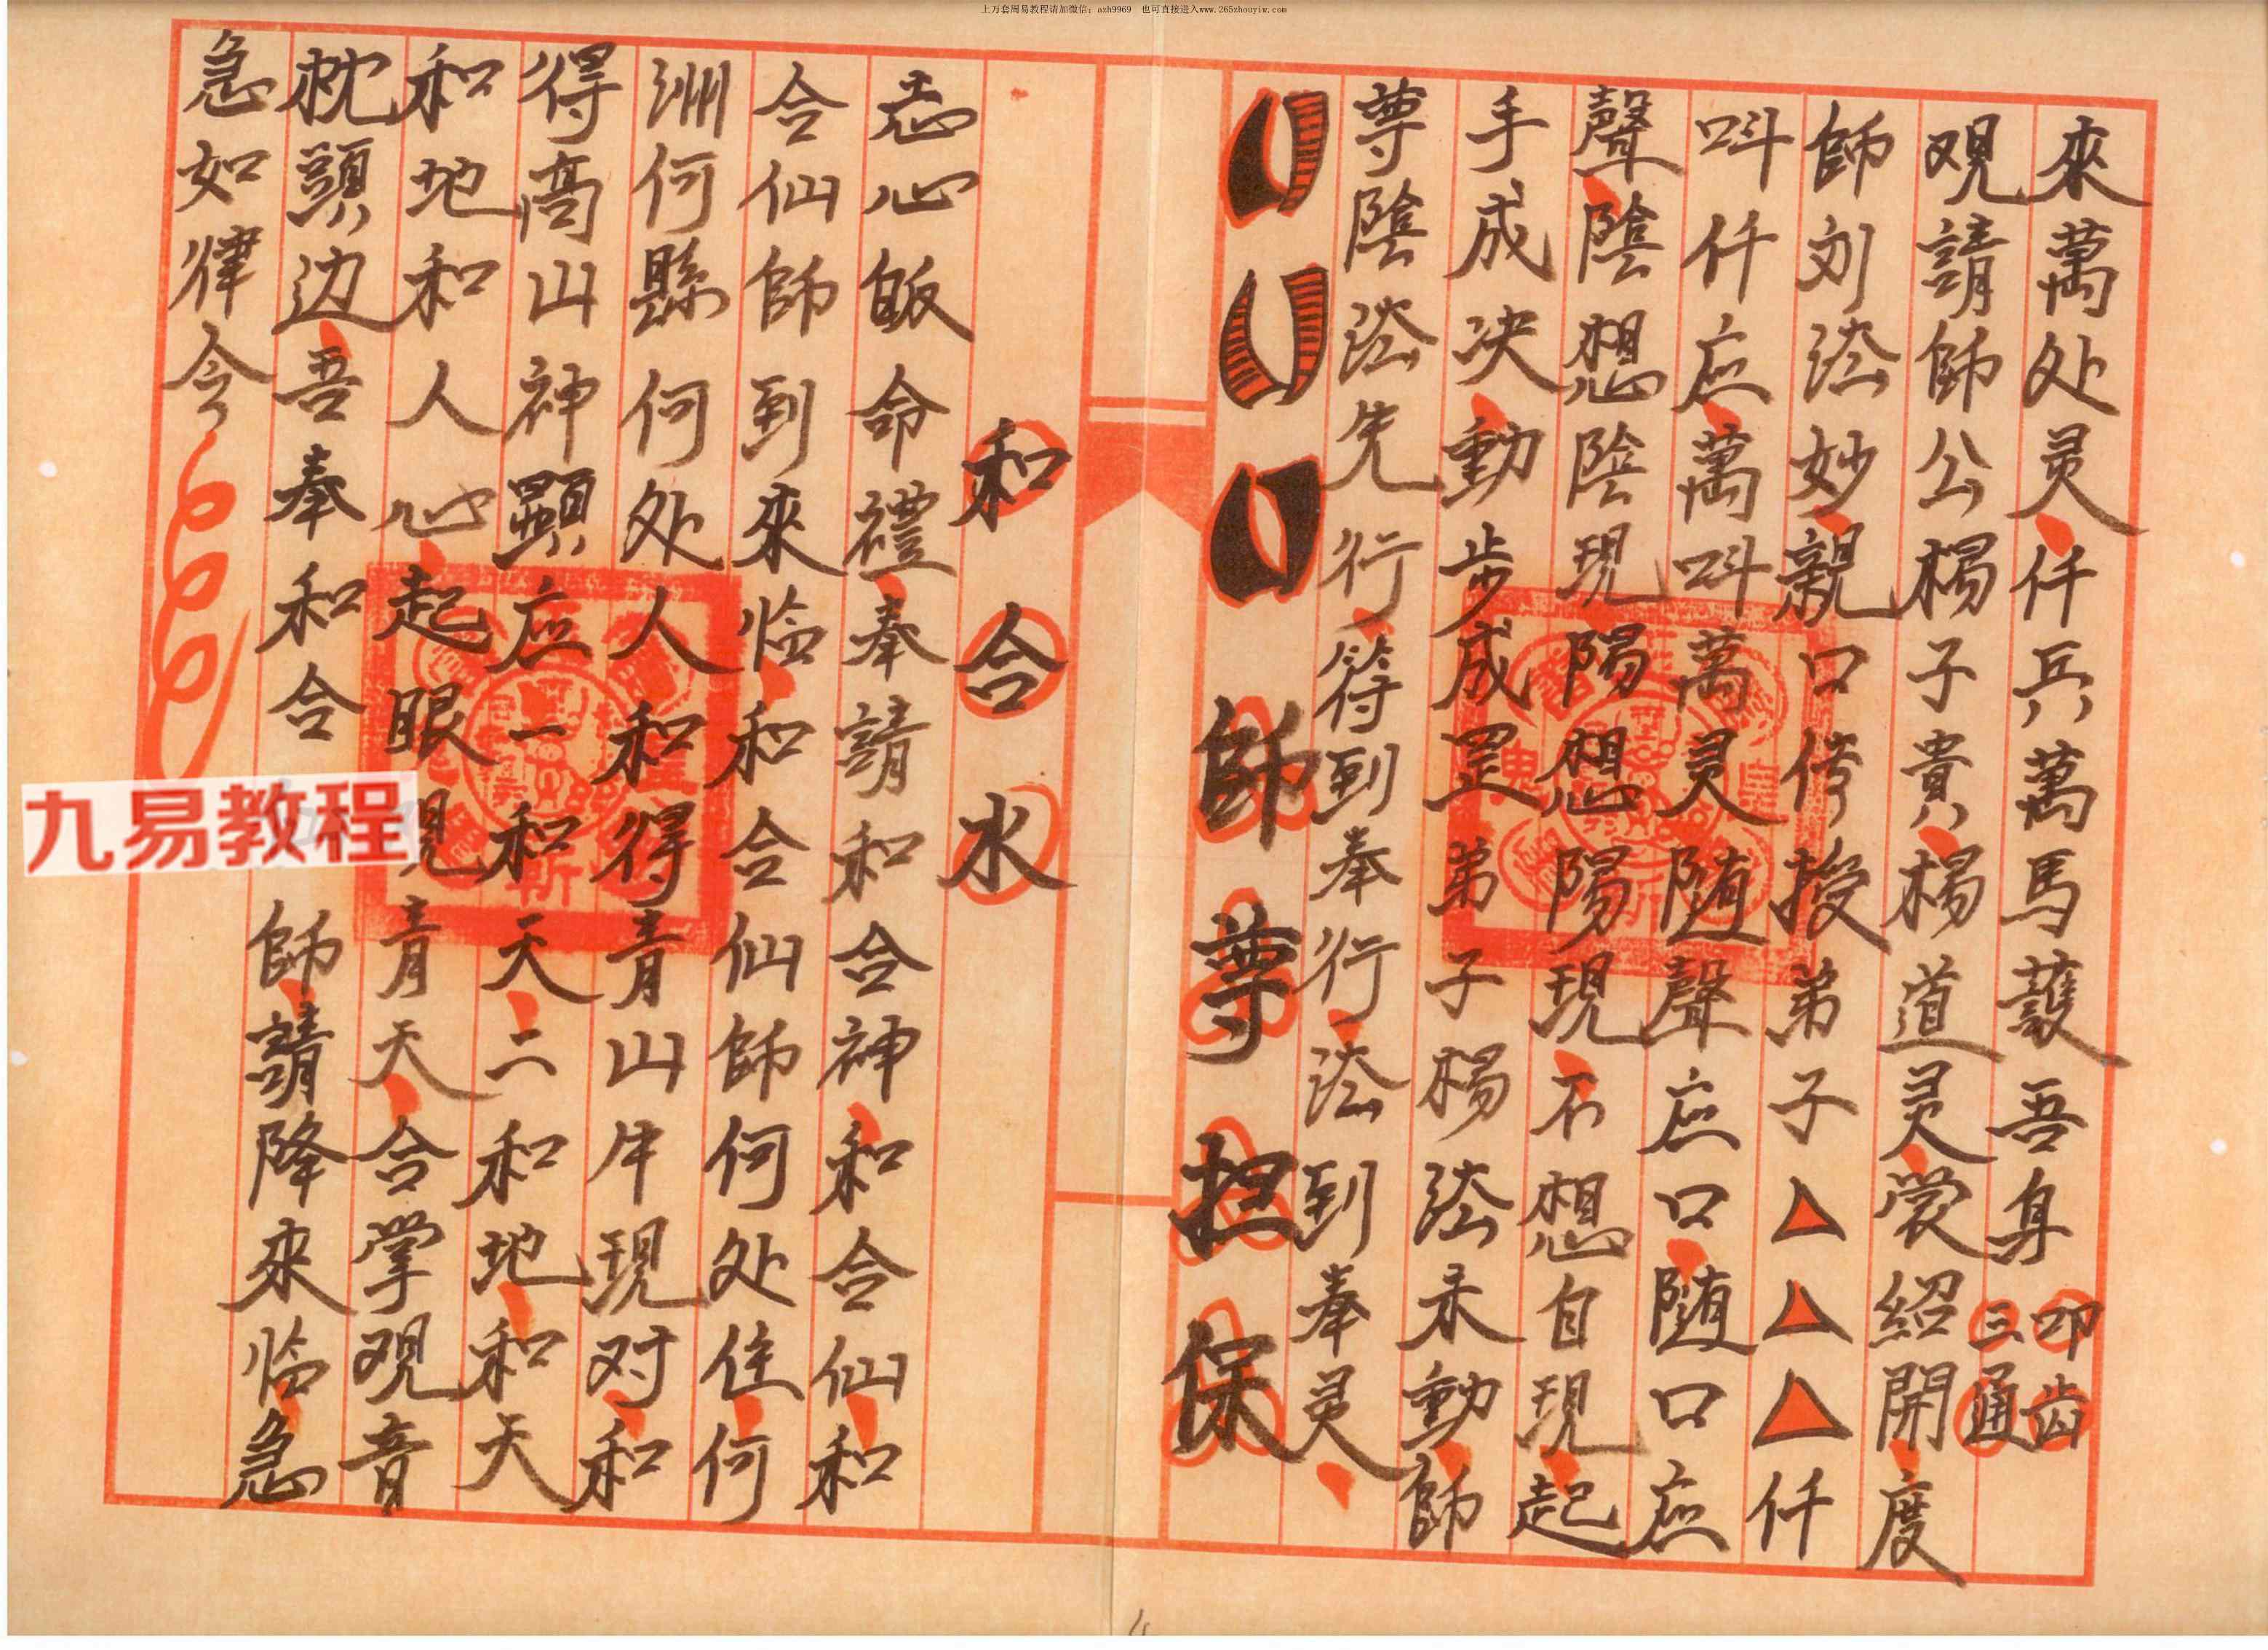 上万套周易教程请加微信：azh9969　也可直接进入www.265zhouyiw.com
來萬处灵仟兵萬馬護吾身
叩齿
三通
观請師公楊子貴楊道灵裳紹開度
師刘法妙親口传授弟子△△△仟
呌仟应萬呌萬灵随聲应口随口应
聲陰想陰現陽想陽現不想自現起
手成决動步成罡弟子楊法未動師
尊陰法先行符到奉行法到奉灵
師尊担保
和合水
志心皈命禮奉請和合神和合仙和
合仙師到來临和合仙師何处住何
洲何縣何处人和得青山牛現对和
得高山神顯应一和天二和地和天
和地和人心起眼观青天合掌观音
枕頭边吾奉和合師請降來临急
急如律令
九易教程